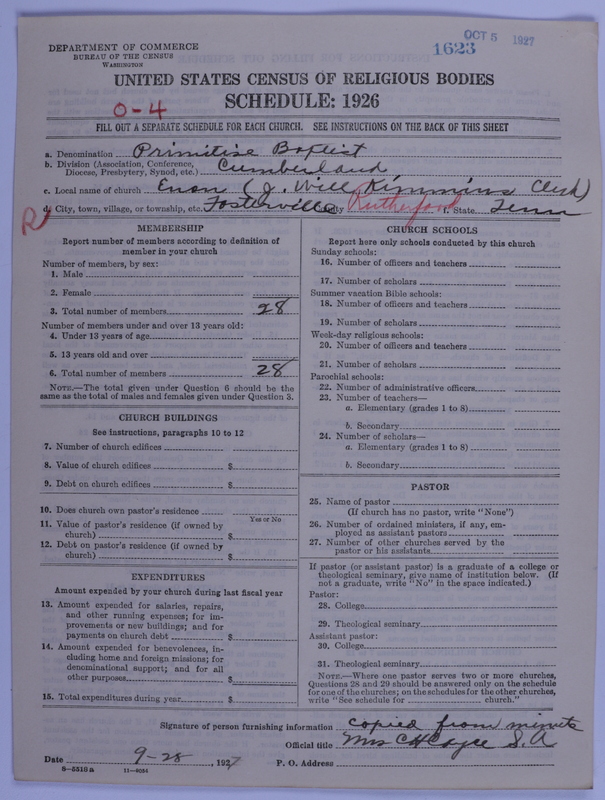 OCT 5 1927
1623
DEPARTMENT OF COMMERCE
BUREAU OF THE CENSUS
WASHINGTON
UNITED STATES CENSUS OF RELIGIOUS BODIES
SCHEDULE: 1926
0-4
FILL OUT A SEPARATE SCHEDULE FOR EACH CHURCH. SEE INSTRUCTIONS ON THE BACK OF THIS SHEET
a. Denomination Primitive Baptist
b. Division (Association, Conference, Diocese, Presbytery, Synod, etc.) Cumberland
c. Local name of church Enon (J. Will Kimmins Clerk)
d. City, town, village, or township, etc. Fosterville Rutherford f. State Tenn
R
MEMBERSHIP
Report number of members according to definition of
member in your church
Number of members, by sex:
1. Male
2. Female
3. Total number of members 28
Number of members under and over 13 years old:
4. Under 13 years of age
5. 13 years old and over
6. Total number of members 28
NOTE.—The total given under Question 6 should be the
same as the total of males and females given under Question 3.
CHURCH BUILDINGS
See instructions, paragraphs 10 to 12
7. Number of church edifices
8. Value of church edifices $
9. Debt on church edifices $
10. Does church own pastor's residence
Yes or No
11. Value of pastor's residence (if owned by
church) $
12. Debt on pastor's residence (if owned by
church) $
EXPENDITURES
Amount expended by your church during last fiscal year
13. Amount expended for salaries, repairs,
and other running expenses; for im-
provements or new buildings; and for
payments on church debt $
14. Amount expended for benevolences, in-
cluding home and foreign missions; for
denominational support; and for all
other purposes $
15. Total expenditures during year $
CHURCH SCHOOLS
Report here only schools conducted by this church
Sunday schools:
16. Number of officers and teachers
17. Number of scholars
Summer vacation Bible schools:
18. Number of officers and teachers
19. Number of scholars
Week-day religious schools:
20. Number of officers and teachers
21. Number of scholars
Parochial schools:
22. Number of administrative officers
23. Number of teachers—
a. Elementary (grades 1 to 8)
b. Secondary
24. Number of scholars—
a. Elementary (grades 1 to 8)
b. Secondary
PASTOR
25. Name of pastor
(If church has no pastor, write "None")
26. Number of ordained ministers, if any, em-
ployed as assistant pastors
27. Number of other churches served by the
pastor or his assistants
If pastor (or assistant pastor) is a graduate of a college or
theological seminary, give name of institution below. (If
not a graduate, write "No" in the space indicated.)
Pastor:
28. College
29. Theological seminary
Assistant pastor:
30. College
31. Theological seminary
NOTE.—Where one pastor serves two or more churches,
Questions 28 and 29 should be answered only on the schedule
for one of the churches; on the schedules for the other churches,
write "See schedule for church."
Signature of person furnishing information copied from minute
Official title Mrs C H Cayce S. A
Date 9-28, 1927 P. O. Address
8—5518a 11—9034